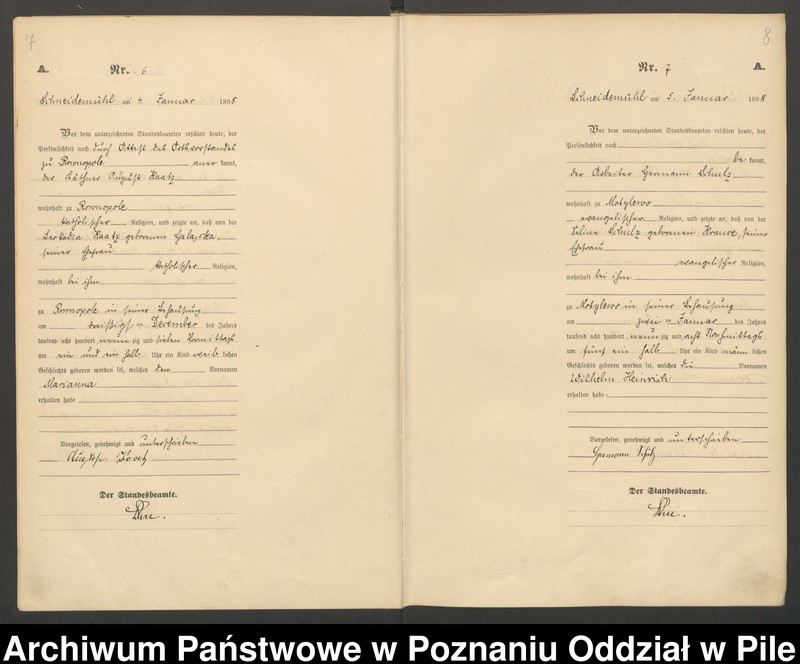 7
A.
Nr. 6
Schneidemühl am 4. Januar 1898
Vor dem unterzeichneten Standesbeamten erschien heute, der
Persönlichkeit nach durch Attest des Ortsvorstandes
zu Rownopole aner kannt,
der Käthner August Kaatz
wohnhaft zu Rownopole
katholischer Religion, und zeigte an, daß von der
Leokadia Kaatz geborenen Galaska,
seiner Ehefrau
katholischer Religion,
wohnhaft bei ihm
zu Rownopole in seiner Behausung
am dreißigs ten Dezember des Jahres
tausend acht hundert neun zig und sieben Vormittags
um ein und ein halb Uhr ein Kind weib lichen
Geschlechts geboren worden sei, welches den Vornamen
Marianna
erhalten habe
Vorgelesen, genehmigt und unterschrieben
August Kaatz
Der Standesbeamte.
8
Nr. 7
A.
Schneidemühl am 5. Januar 1898
Vor dem unterzeichneten Standesbeamten erschien heute, der
Persönlichkeit nach
be kannt,
der Arbeiter Hermann Schulz
wohnhaft zu Motylewo
evangelischer Religion, und zeigte an, daß von der
Zeline Schulz geborenen Krause, seiner
Ehefrau
evangelischer Religion,
wohnhaft bei ihm
zu Motylewo in seiner Behausung
am zwei ten Januar des Jahres
tausend acht hundert neun zig und acht Nachmittags
um fünf ein halb Uhr ein Kind männ lichen
Geschlechts geboren worden sei, welches die Vornamen
Wilhelm Heinrich
erhalten habe.
Vorgelesen, genehmigt und unterschrieben
Hermann Schulz
Der Standesbeamte.
Archiwum Państwowe w Poznaniu Oddział w Pile